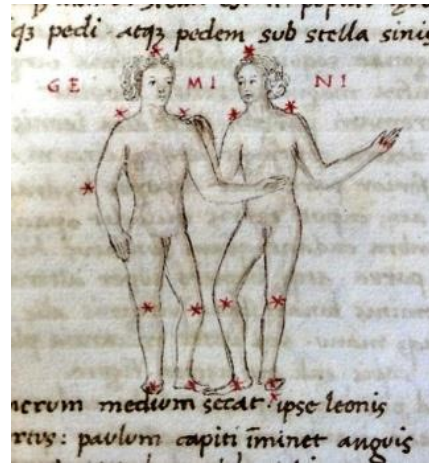 pedi atqꝫ pedem sub stella
GE MI NI
medium secat ipse leonis
rtus: paulum capiti īminet anguis